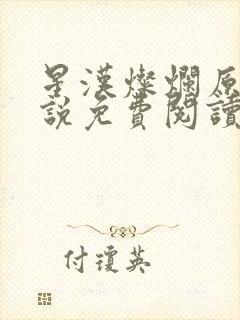 星漢燦爛原
說免費閱讀
付瓊英